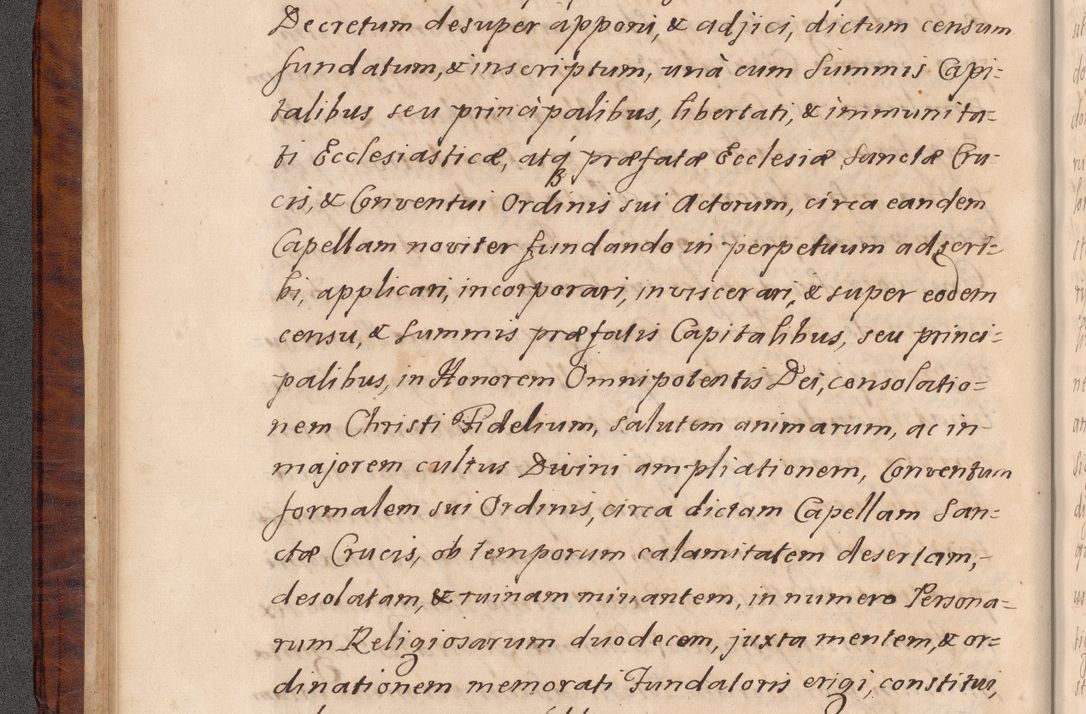 Decretum desuper apponi, & adjici, dictum censum
fundatum, & inscriptum, unà cum Summis Capi=
talibus seu principalibus, libertati, & immunita=
ti Ecclesiasticæ, atq́ præfatæ Ecclesiæ Sanctæ Cru=
cis, & Conventui Ordinis sui Actorum, circa eandem
Capellam noviter fundando in perpetuum adscri=
bi, applicari, incorporari, inviscerari, & super eodem
censu, & Summis præfatis Capitalibus, seu princi=
palibus, in Honorem Omnipotentis Dei, consolatio=
nem Christi Fidelium, salutem animarum, ac in
majorem cultus Divini ampliationem, Conventum
formalem sui Ordinis, circa dictam Capellam San=
ctæ Crucis, ob temporum calamitatem desertam,
desolatam, & ruinam minantem, in numero Persona=
rum Religiosarum duodecem, juxta mentem, & or=
dinationem memorati Fundatoris erigi, constitui,